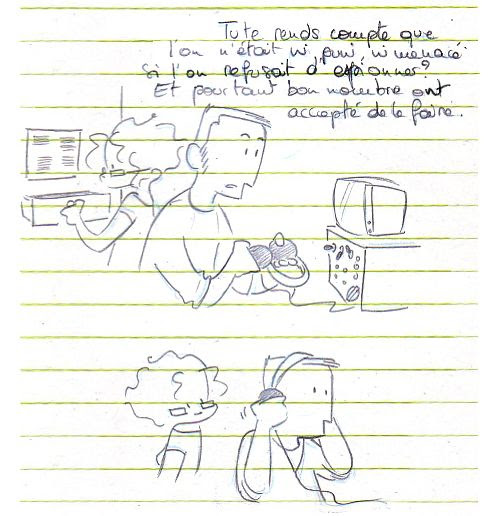 Tu te rends compte que
l'on n'était ni puni, ni menacé
si l'on refusait d'espionner?
Et pourtant bon nombre ont
accepté de le faire.